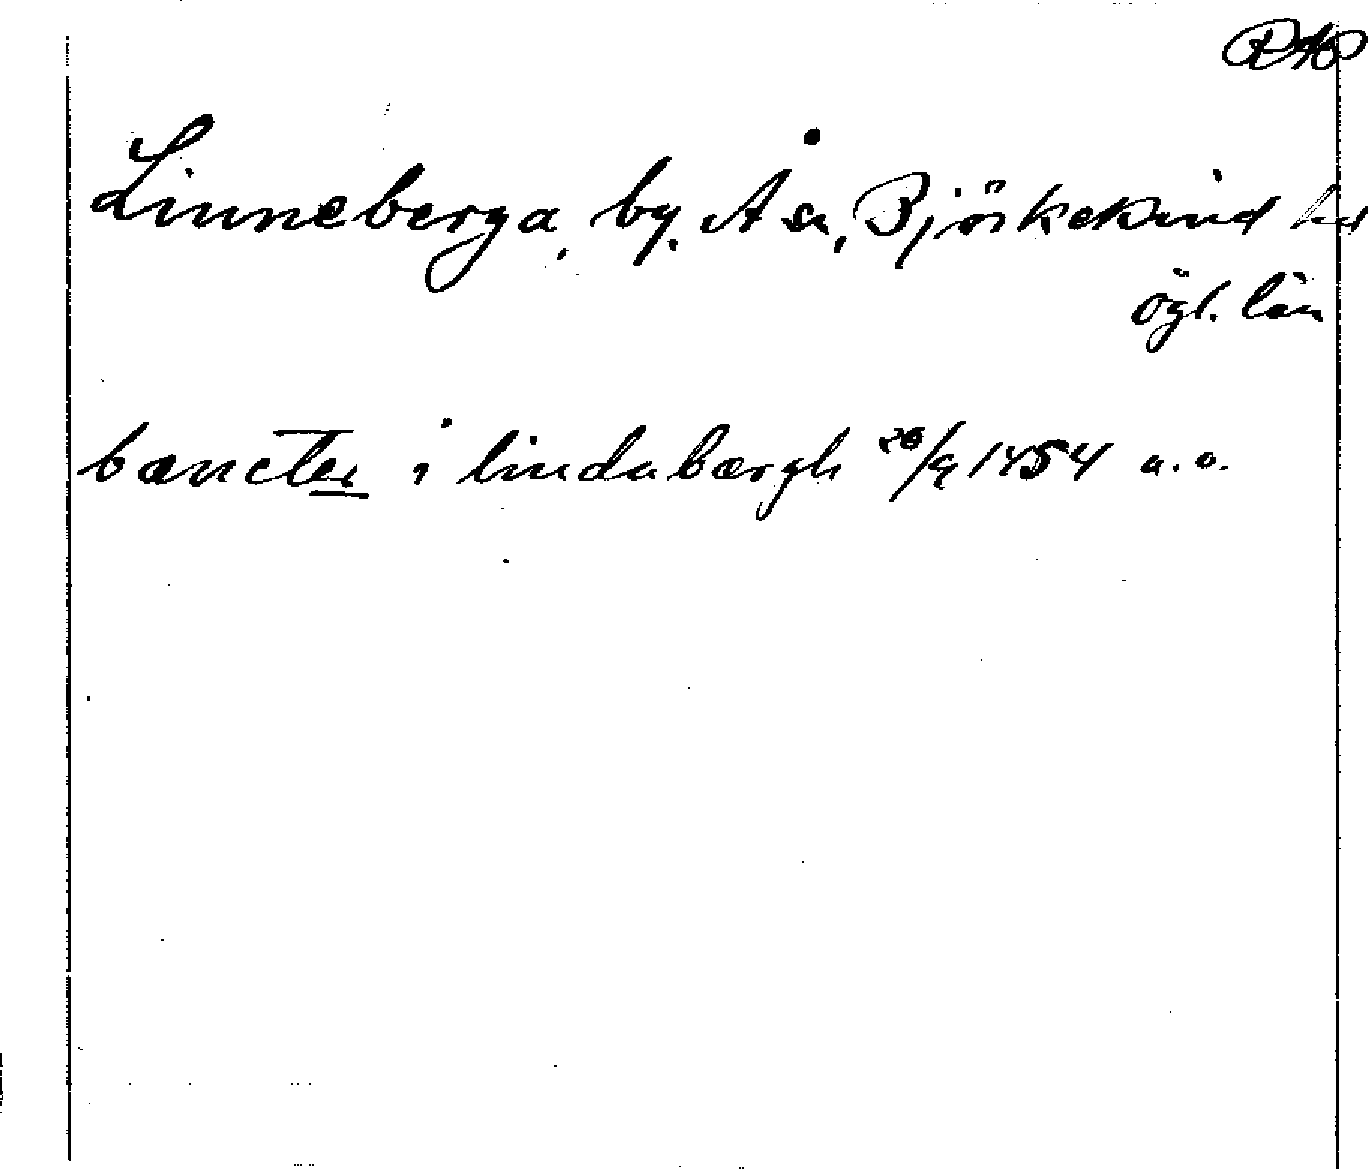 Linneberga, by. Å sn, Björkekind hd
ögl. län
bæncter i lindabærgh 26/9 1454 a. o.